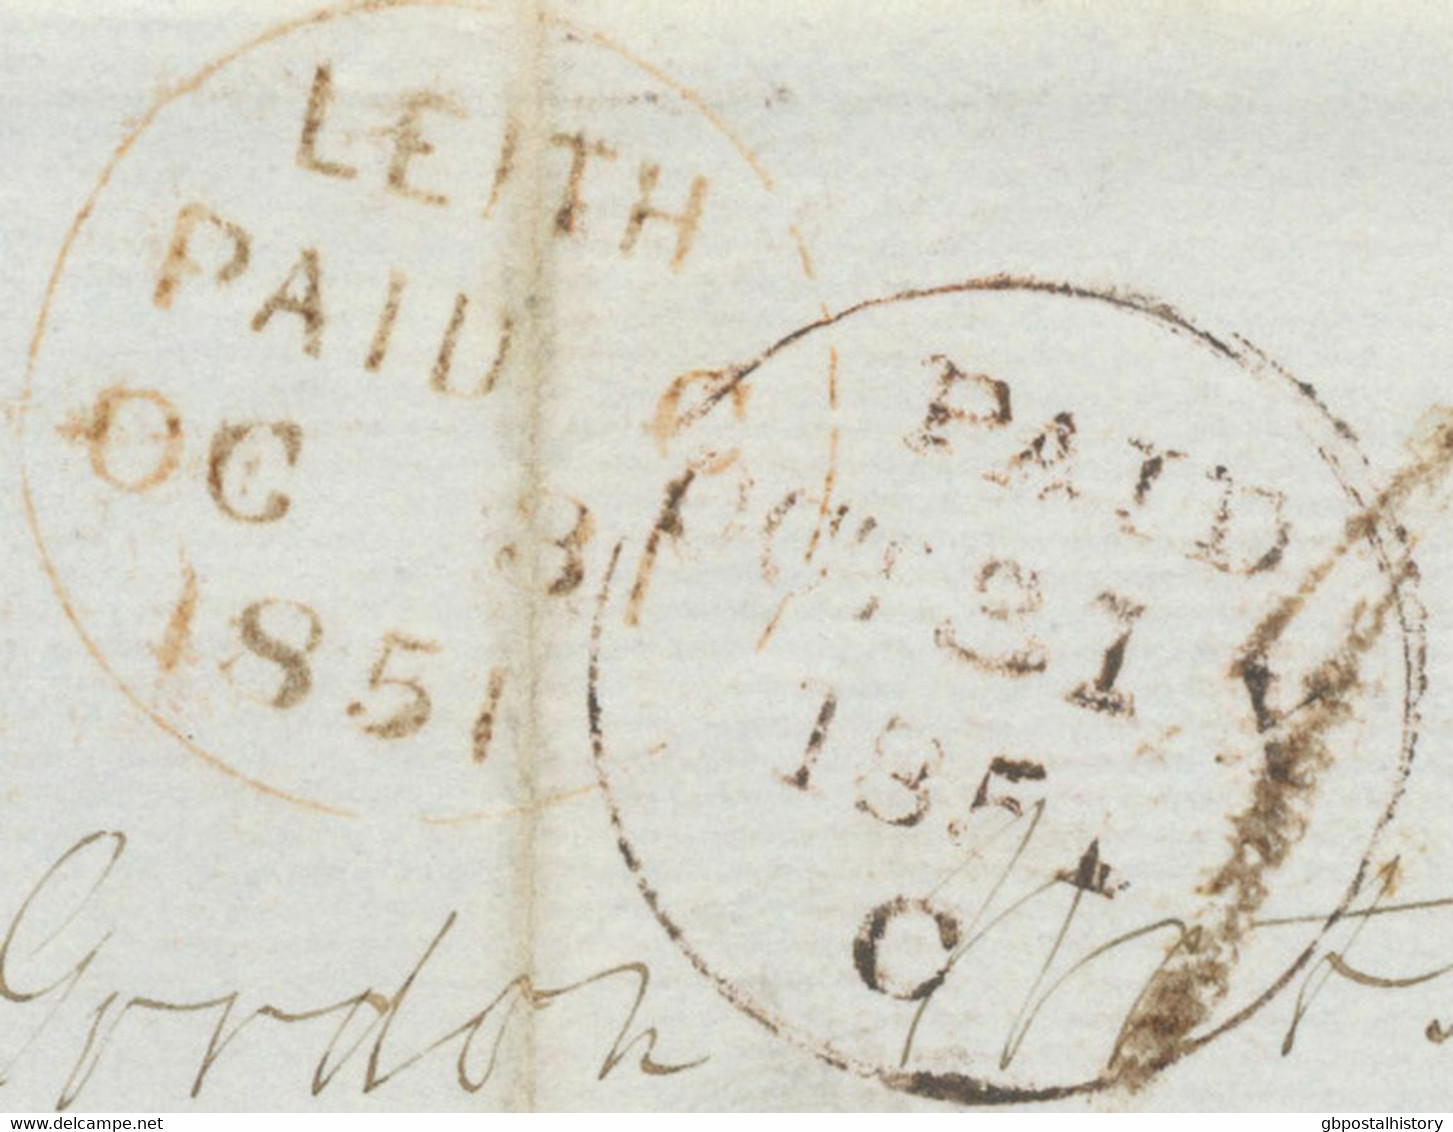 LEITH
PAID
OC 31
C
1851
PAID
OCT 31
1851
C
Gordon
www.delcampe.net
gbpostalhistory